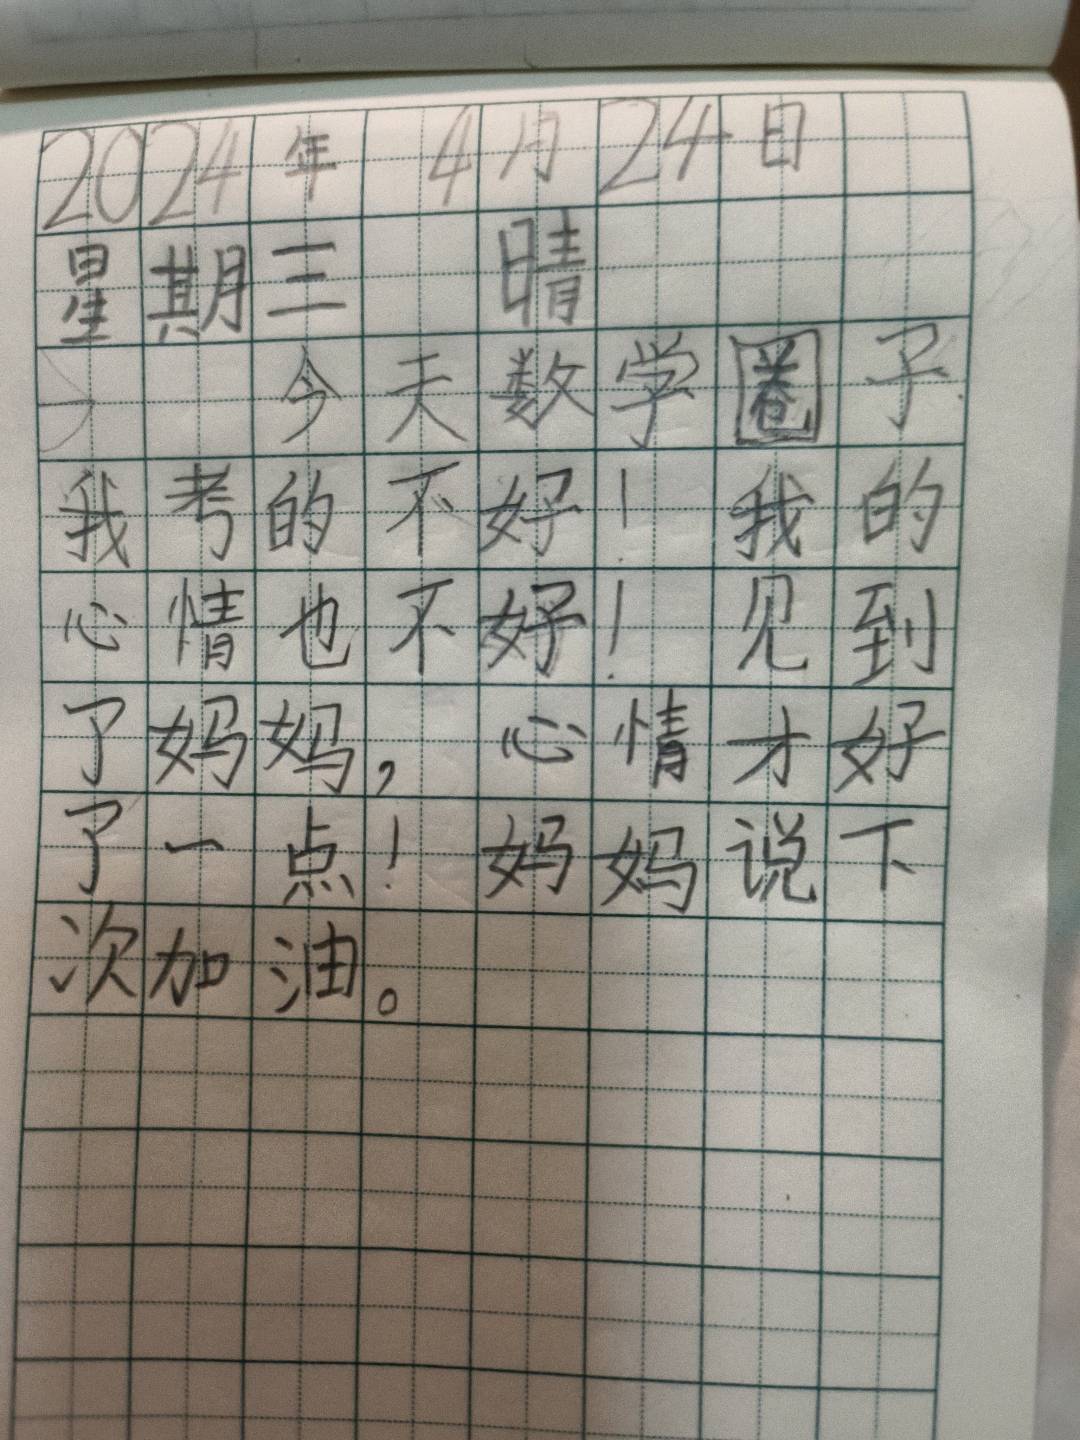 2024年 4月24日
星期三 晴
今天数学圈子
我考的不好！我的
心情也不好！见到
了妈妈，心情才好
了一点！妈妈说下
次加油。